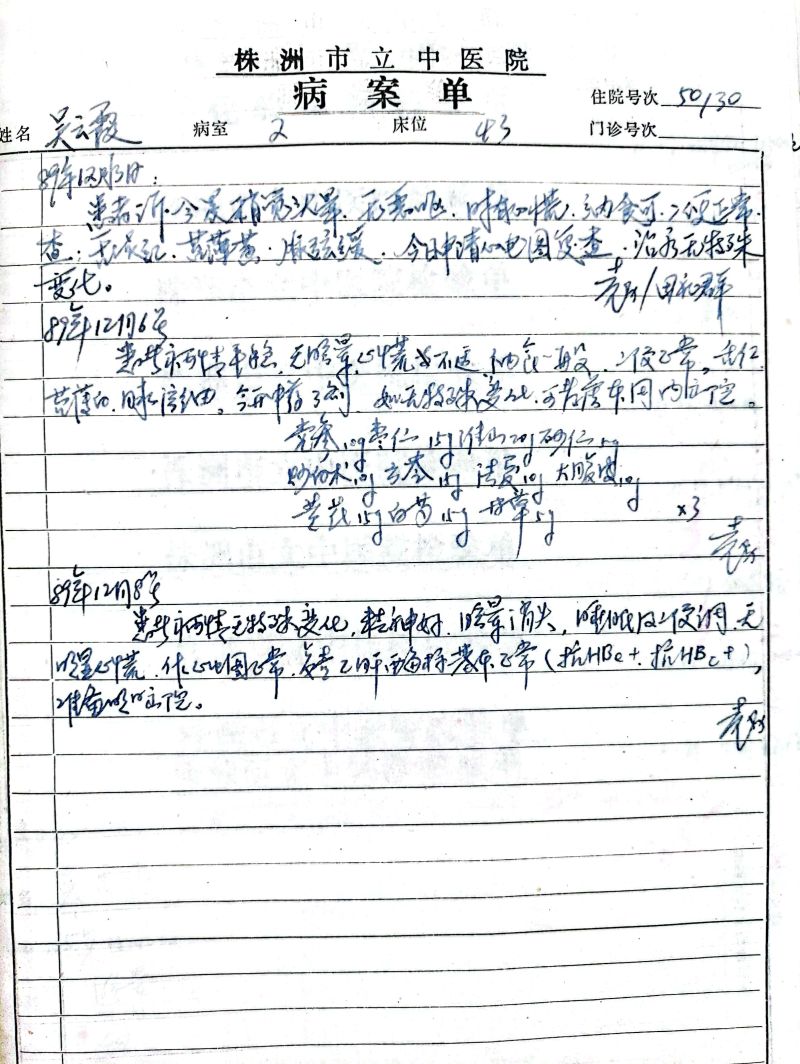 株洲市立中医院
病案单
住院号次 50130
姓名 吴云霞 病室 2 床位 43 门诊号次
89年12月
患者诉今晨稍觉头晕,无恶心,时有心慌,纳食可,二便正常.
查:舌质红,苔薄黄,脉弦缓,今日申请心电图复查,治疗无特殊
变化。
89年12月6号
患者病情平稳,无晕,心慌 不适,纳食一般,二便正常。舌红
苔薄白,脉弦细。今再中药3剂,如无特殊变化,可 周内出院。
党参10g 枣仁15g 淮山20g 砂仁5g
炒白术10g 云苓15g 法夏10g 大腹皮10g
黄芪15g 白芍15g 甘草5g ×3
袁
89年12月8号
患者病情无特殊变化,精神好,晕消失,睡眠及二便调,无
明显心慌,作心电图正常,复查乙肝 标基本正常(抗HBe+,抗HBc+),
准备明日出院。
袁